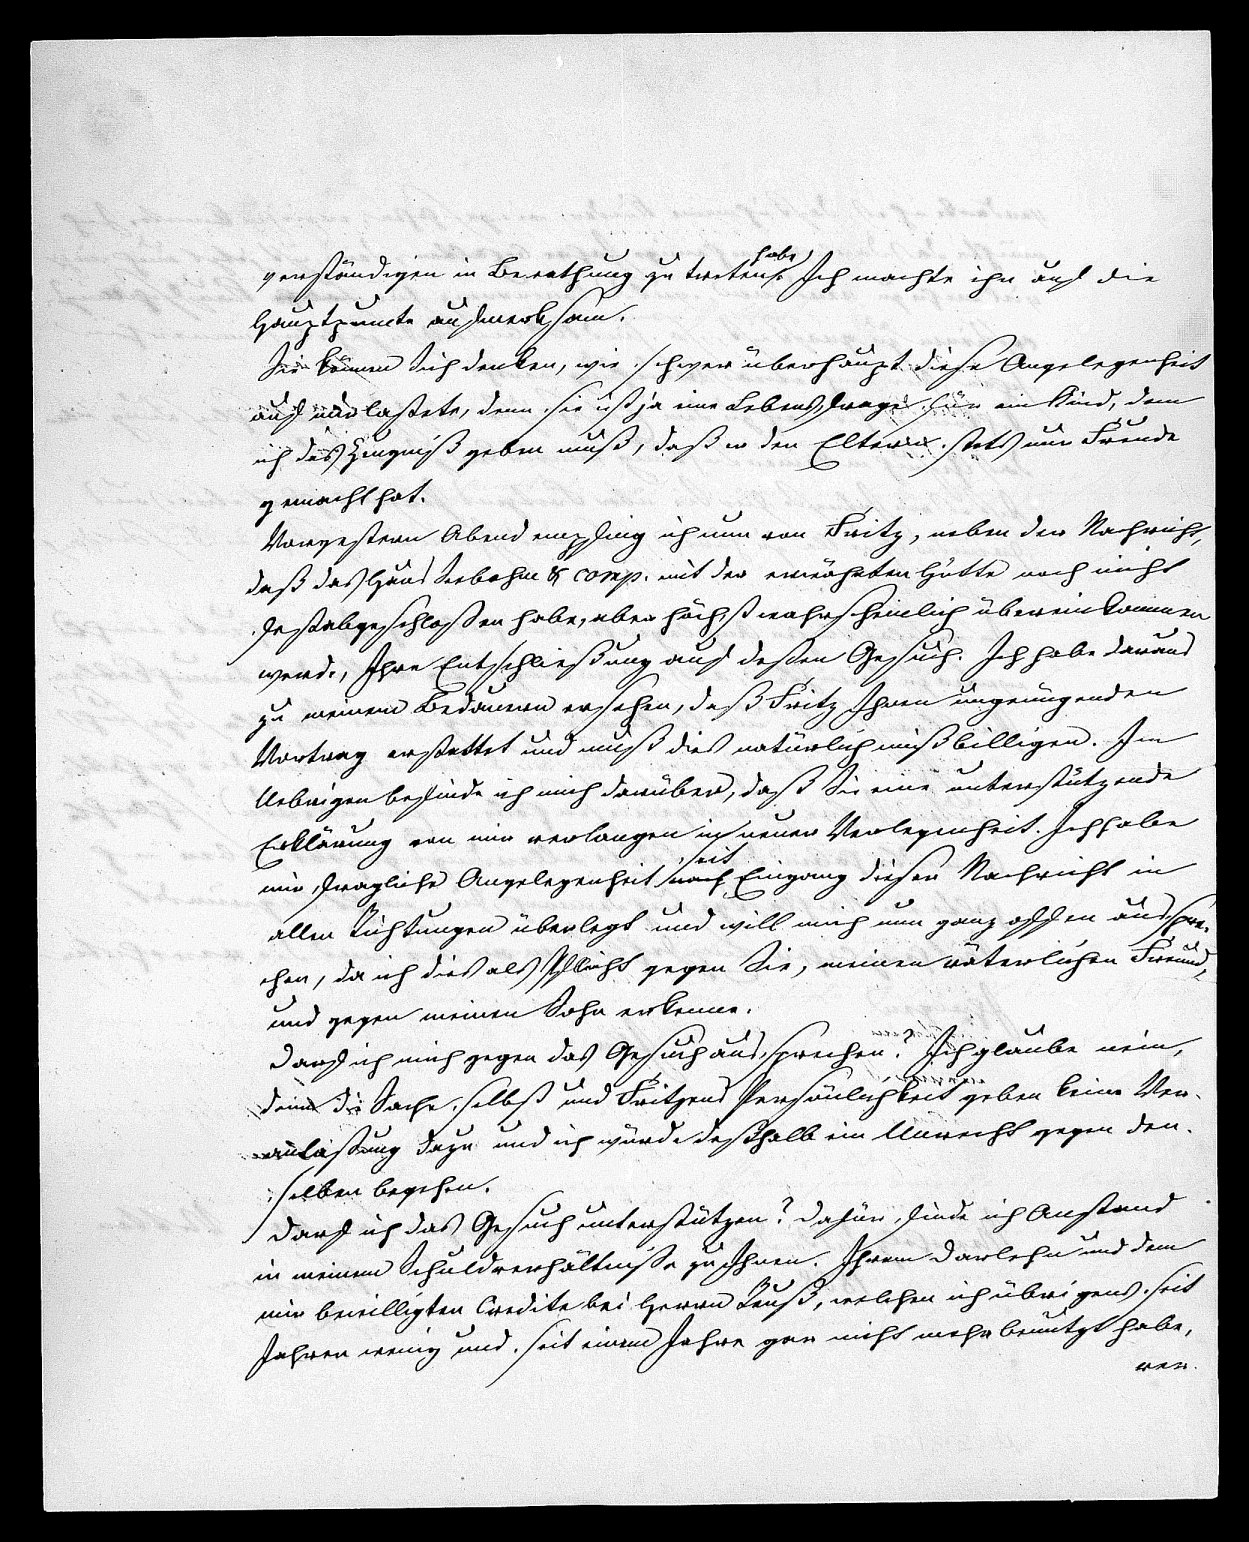 verständigen in Berathung zu treten habe. Ich machte ihn auf die
Hauptpuncte aufmerksam.
Sie können Sich denken, wie schwer überhaupt diese Angelegenheit
auf mir lastete, denn sie ist ja eine Lebensfrage für ein Kind, dem
ich das Zeugniß geben muß, daß er den Eltern stets nur Freude
gemacht hat.
Vorgestern Abend empfing ich nun von Fritz, neben der Nachricht,
daß das Haus Seebohm & comp. mit der erwähnten Hütte noch nicht
festabgeschloßen habe, aber höchst wahrscheinlich übereinkommen
werde, Ihre Entschließung auf deßen Gesuch. Ich habe daraus
zu meinem Bedauern ersehen, daß Fritz Ihnen ungenügenden
Vortrag erstattet und muß dies natürlich mißbilligen. Im
Uebrigen befinde ich mich darüber, daß Sie eine unterstützende
Erklärung von mir verlangen in neuer Verlegenheit. Ich habe
mir fragliche Angelegenheit nach seit Eingang dieser Nachricht in
allen Richtungen überlegt und will mich nun ganz offen ausspre-
chen, da ich dies als Pflicht gegen Sie, meinen väterlichen Freund,
und gegen meinen Sohn erkenne.
Darf ich mich gegen das Gesuch aussprechen? Ich glaube nein,
denn die Sache selbst und Fritzens Persönlichkeit geben keine Ver-
anlaßung dazu und ich würde deßhalb ein Unrecht gegen den-
selben begehen.
Darf ich das Gesuch unterstützen? Dafür finde ich Anstand
in meinem Schuldverhältniße zu Ihnen. Ihrem Darlehn und dem
mir bewilligten Credite bei Herrn Reuß, welchen ich übrigens seit
Jahren wenig und seit einem Jahre gar nicht mehr benutzt habe,
ver-